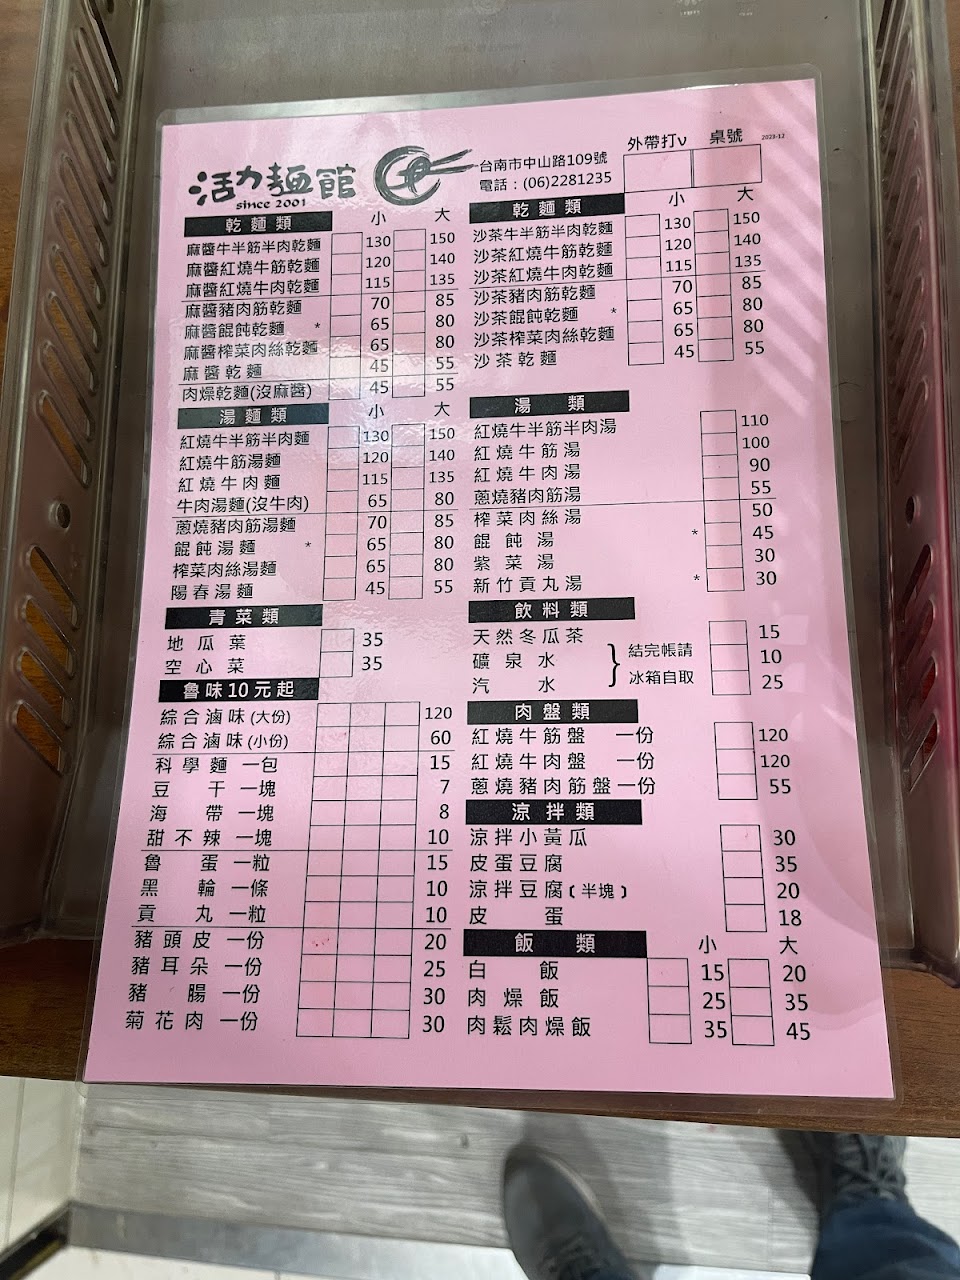 活力麵館
since 2001
台南市中山路109號
電話：(06)2281235
外帶打ν 桌號 2023-12
乾麵類 小 大
麻醬牛半筋半肉乾麵 130 150
麻醬紅燒牛筋乾麵 120 140
麻醬紅燒牛肉乾麵 115 135
麻醬豬肉筋乾麵 70 85
麻醬餛飩乾麵 * 65 80
麻醬榨菜肉絲乾麵 65 80
麻醬乾麵 45 55
肉燥乾麵(沒麻醬) 45 55
湯麵類 小 大
紅燒牛半筋半肉麵 130 150
紅燒牛筋湯麵 120 140
紅燒牛肉麵 115 135
牛肉湯麵(沒牛肉) 65 80
蔥燒豬肉筋湯麵 70 85
餛飩湯麵 * 65 80
榨菜肉絲湯麵 65 80
陽春湯麵 45 55
青菜類
地瓜葉 35
空心菜 35
魯味10元起
綜合滷味(大份) 120
綜合滷味(小份) 60
科學麵 一包 15
豆干 一塊 7
海帶 一塊 8
甜不辣 一塊 10
魯蛋 一粒 15
黑輪 一條 10
貢丸 一粒 10
豬頭皮 一份 20
豬耳朵 一份 25
豬腸 一份 30
菊花肉 一份 30
乾麵類 小 大
沙茶牛半筋半肉乾麵 130 150
沙茶紅燒牛筋乾麵 120 140
沙茶紅燒牛肉乾麵 115 135
沙茶豬肉筋乾麵 70 85
沙茶餛飩乾麵 * 65 80
沙茶榨菜肉絲乾麵 65 80
沙茶乾麵 45 55
湯類
紅燒牛半筋半肉湯 110
紅燒牛筋湯 100
紅燒牛肉湯 90
蔥燒豬肉筋湯 55
榨菜肉絲湯 50
餛飩湯 * 45
紫菜湯 30
新竹貢丸湯 * 30
飲料類
天然冬瓜茶 15
礦泉水 } 結完帳請 10
汽水 冰箱自取 25
肉盤類
紅燒牛筋盤 一份 120
紅燒牛肉盤 一份 120
蔥燒豬肉筋盤 一份 55
涼拌類
涼拌小黃瓜 30
皮蛋豆腐 35
涼拌豆腐〔半塊〕 20
皮蛋 18
飯類 小 大
白飯 15 20
肉燥飯 25 35
肉鬆肉燥飯 35 45